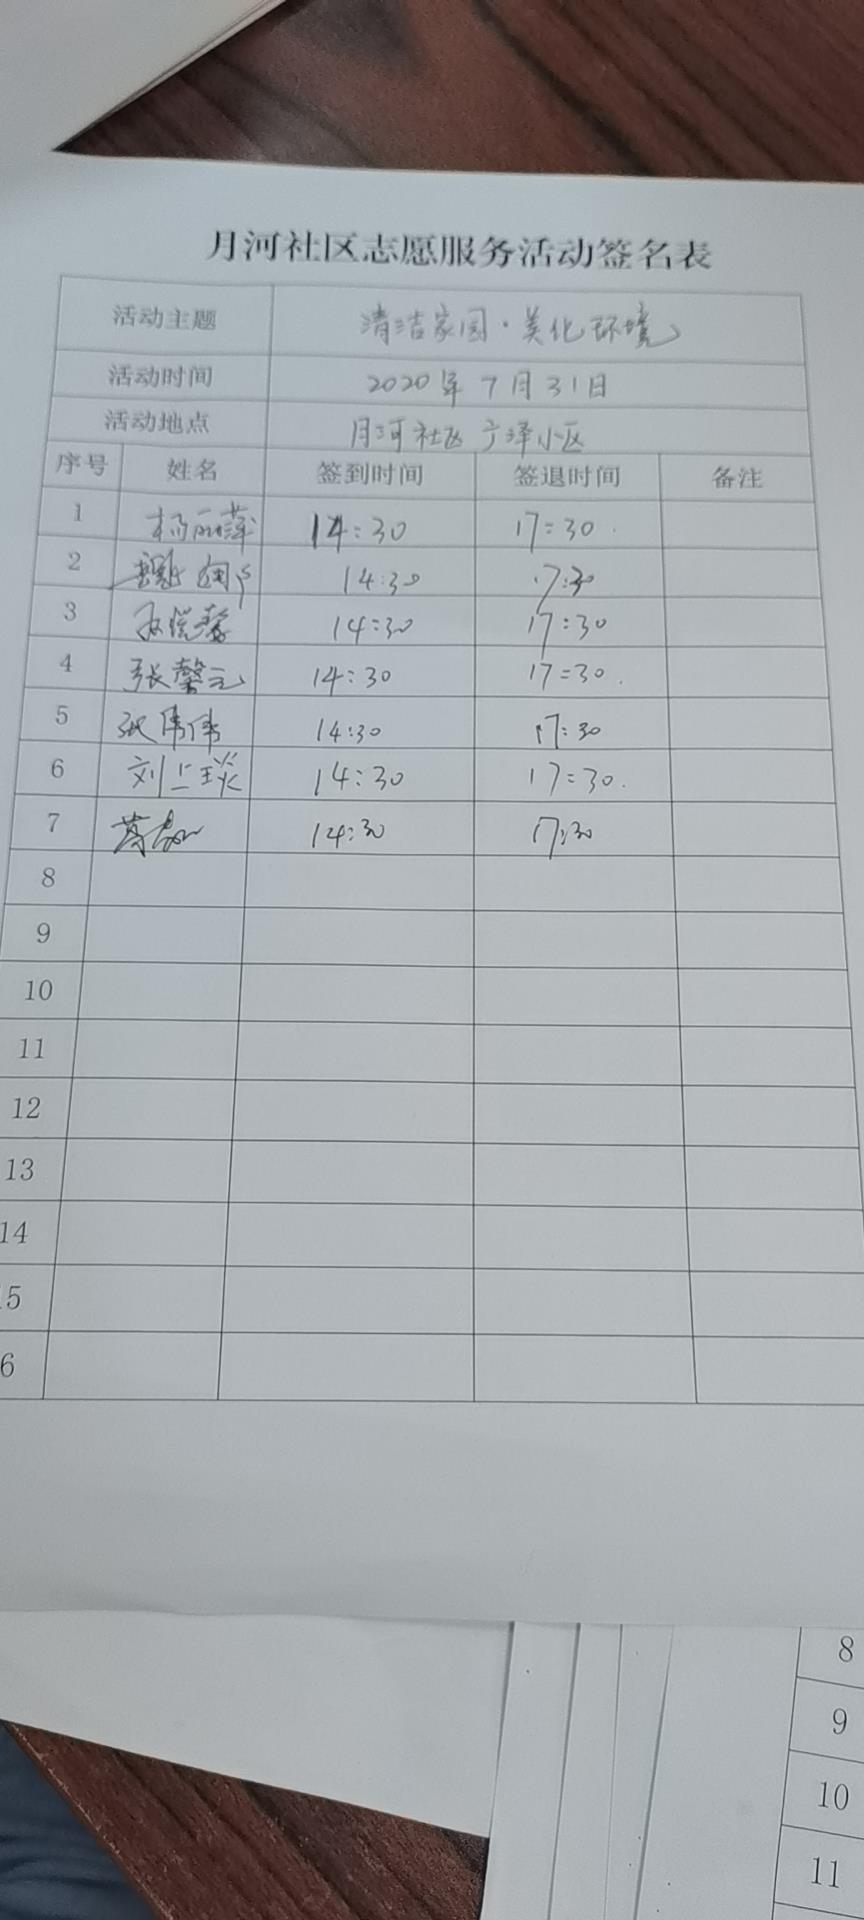 月河社区志愿服务活动签名表
活动主题 清洁家园·美化环境
活动时间 2020年7月31日
活动地点 月河社区广泽小区
序号 姓名 签到时间 签退时间 备注
1 杨丽萍 14:30 17:30
2 14:30 17:30
3 14:30 17:30
4 张馨元 14:30 17:30
5 张伟伟 14:30 17:30
6 刘上琰 14:30 17:30
7 14:30 17:30
8
9
10
11
12
13
14
15
6
8
9
10
11